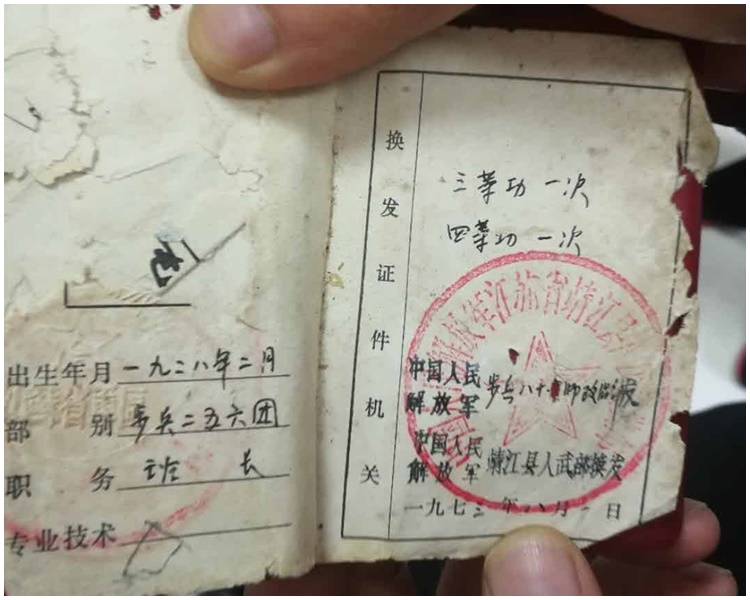 出生年月 一九二八年二月
部别 步兵二五六团
职务 长
专业技术
换发证件机关
三等功 一次
四等功 一次
中国人民
解放军 步兵八十 师政治
中国人民
解放军 靖江县人武部换发
一九七三年八月 日
解放军江苏省靖江县